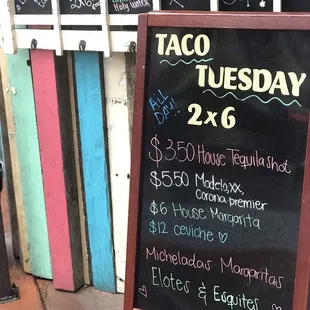 2x6
Holy water
TACO
TUESDAY
ALL
DAY!
2x6
$3.50 House Tequila shot
$5.50 Modelo, xx,
Corona premier
$6 House Margarita
$12 ceviche ♡
Micheladas Margaritas
Elotes & Esquites